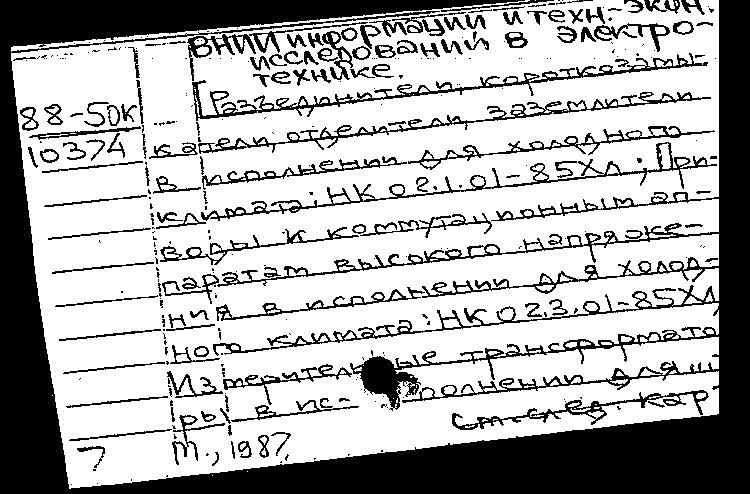 ВНИИ информации и техн.-экон.
исследований в электро-
технике.
88-50к
10374
[Разъединители, короткозамы-
катели, отделители, заземлители
в исполнении для холодного
климата: НК 02.1.01-85ХЛ; При-
воды к коммутационным ап-
паратам высокого напряже-
ния в исполнении для холод-
ного климата: НК 02.3.01-85ХЛ
Измерительные трансформато
ры в ис- полнении для
См. след. кар
7 М., 1987.